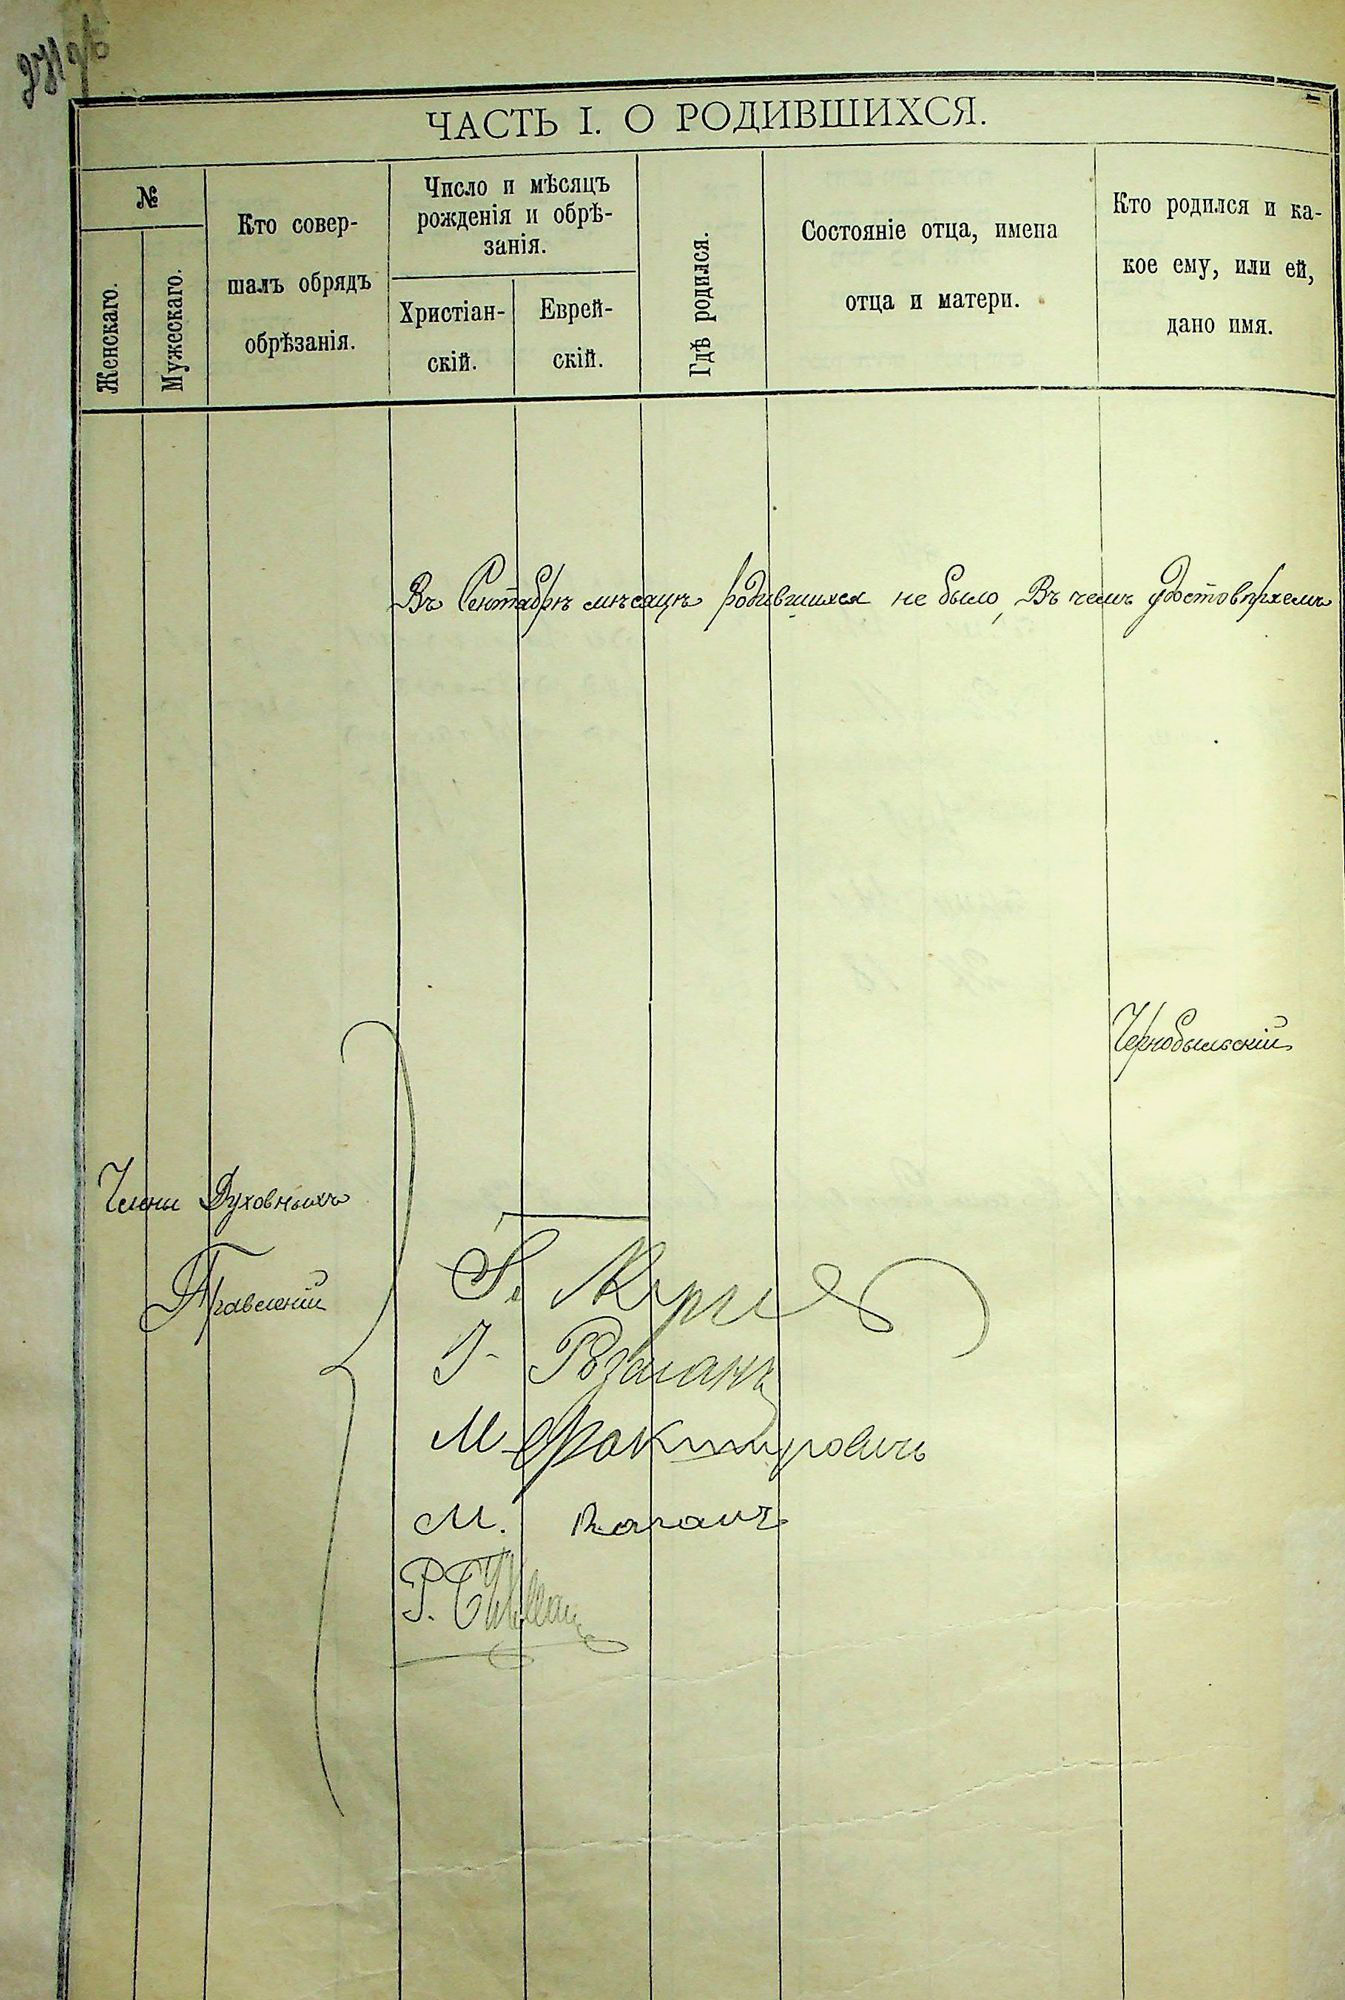 ЧАСТЬ I. О РОДИВШИХСЯ.
№
Женскаго.
Мужескаго.
Кто совер-
шалъ обрядъ
обрѣзанія.
Число и мѣсяцъ
рожденія и обрѣ-
занія.
Христіан-
скій.
Еврей-
скій.
Гдѣ родился.
Состояніе отца, имена
отца и матери.
Кто родился и ка-
кое ему, или ей,
дано имя.
Въ Сентябрѣ мѣсяцѣ родившихся не было, Въ чемъ удостовѣряемъ
Чернобыльскій
Члены Духовныхъ
Правленій
М. Факторовичъ
М. Каганъ
Р.